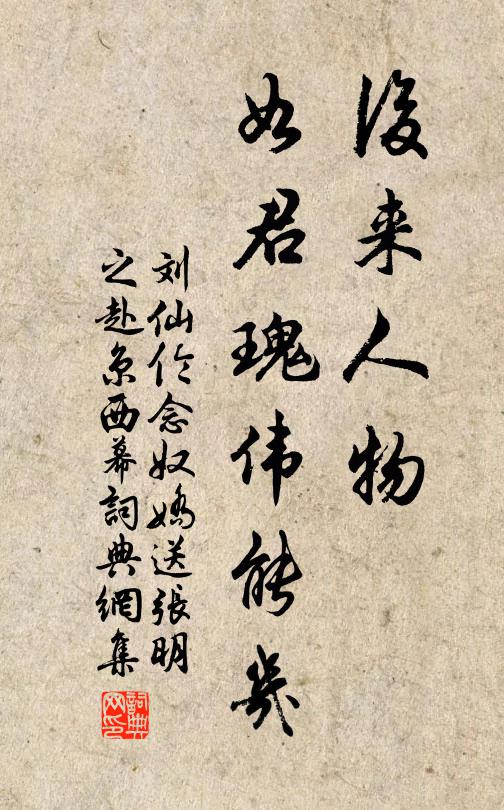 後来人物
如君瑰伟能几
刘仙伦念奴娇送張明
之赴京西幕詞典網集
詞典
网印